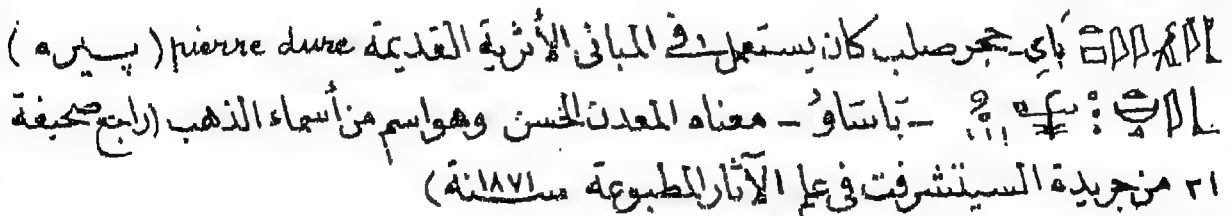 بَاي - حجر صلب كان يستعمل في المباني الأثرية القديمة pierre dure (بييره)
- بَاسَتَاوُ - معناه المعدن الحسن وهو اسم من أسماء الذهب (راجع صحيفة
٢١ من جريدة السيتشرفت في علم الآثار المطبوعة سنة ١٨٧١)